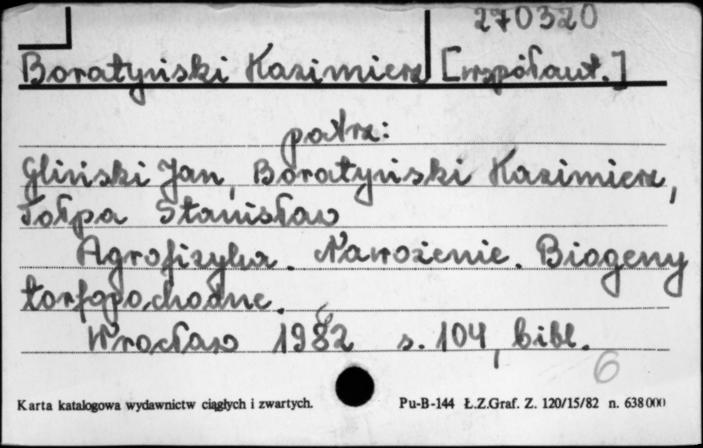 270320
Boratyński Kazimierz [współaut.]
patrz:
Gliński Jan, Boratyński Kazimierz,
Tołpa Stanisław
Agrofizyka. Nawożenie. Biogeny
torfopochodne.
Wrocław 1982 s. 104, bibl.
6
Karta katalogowa wydawnictw ciągłych i zwartych. Pu-B-144 Ł.Z.Graf. Z. 120/15/82 n. 638000